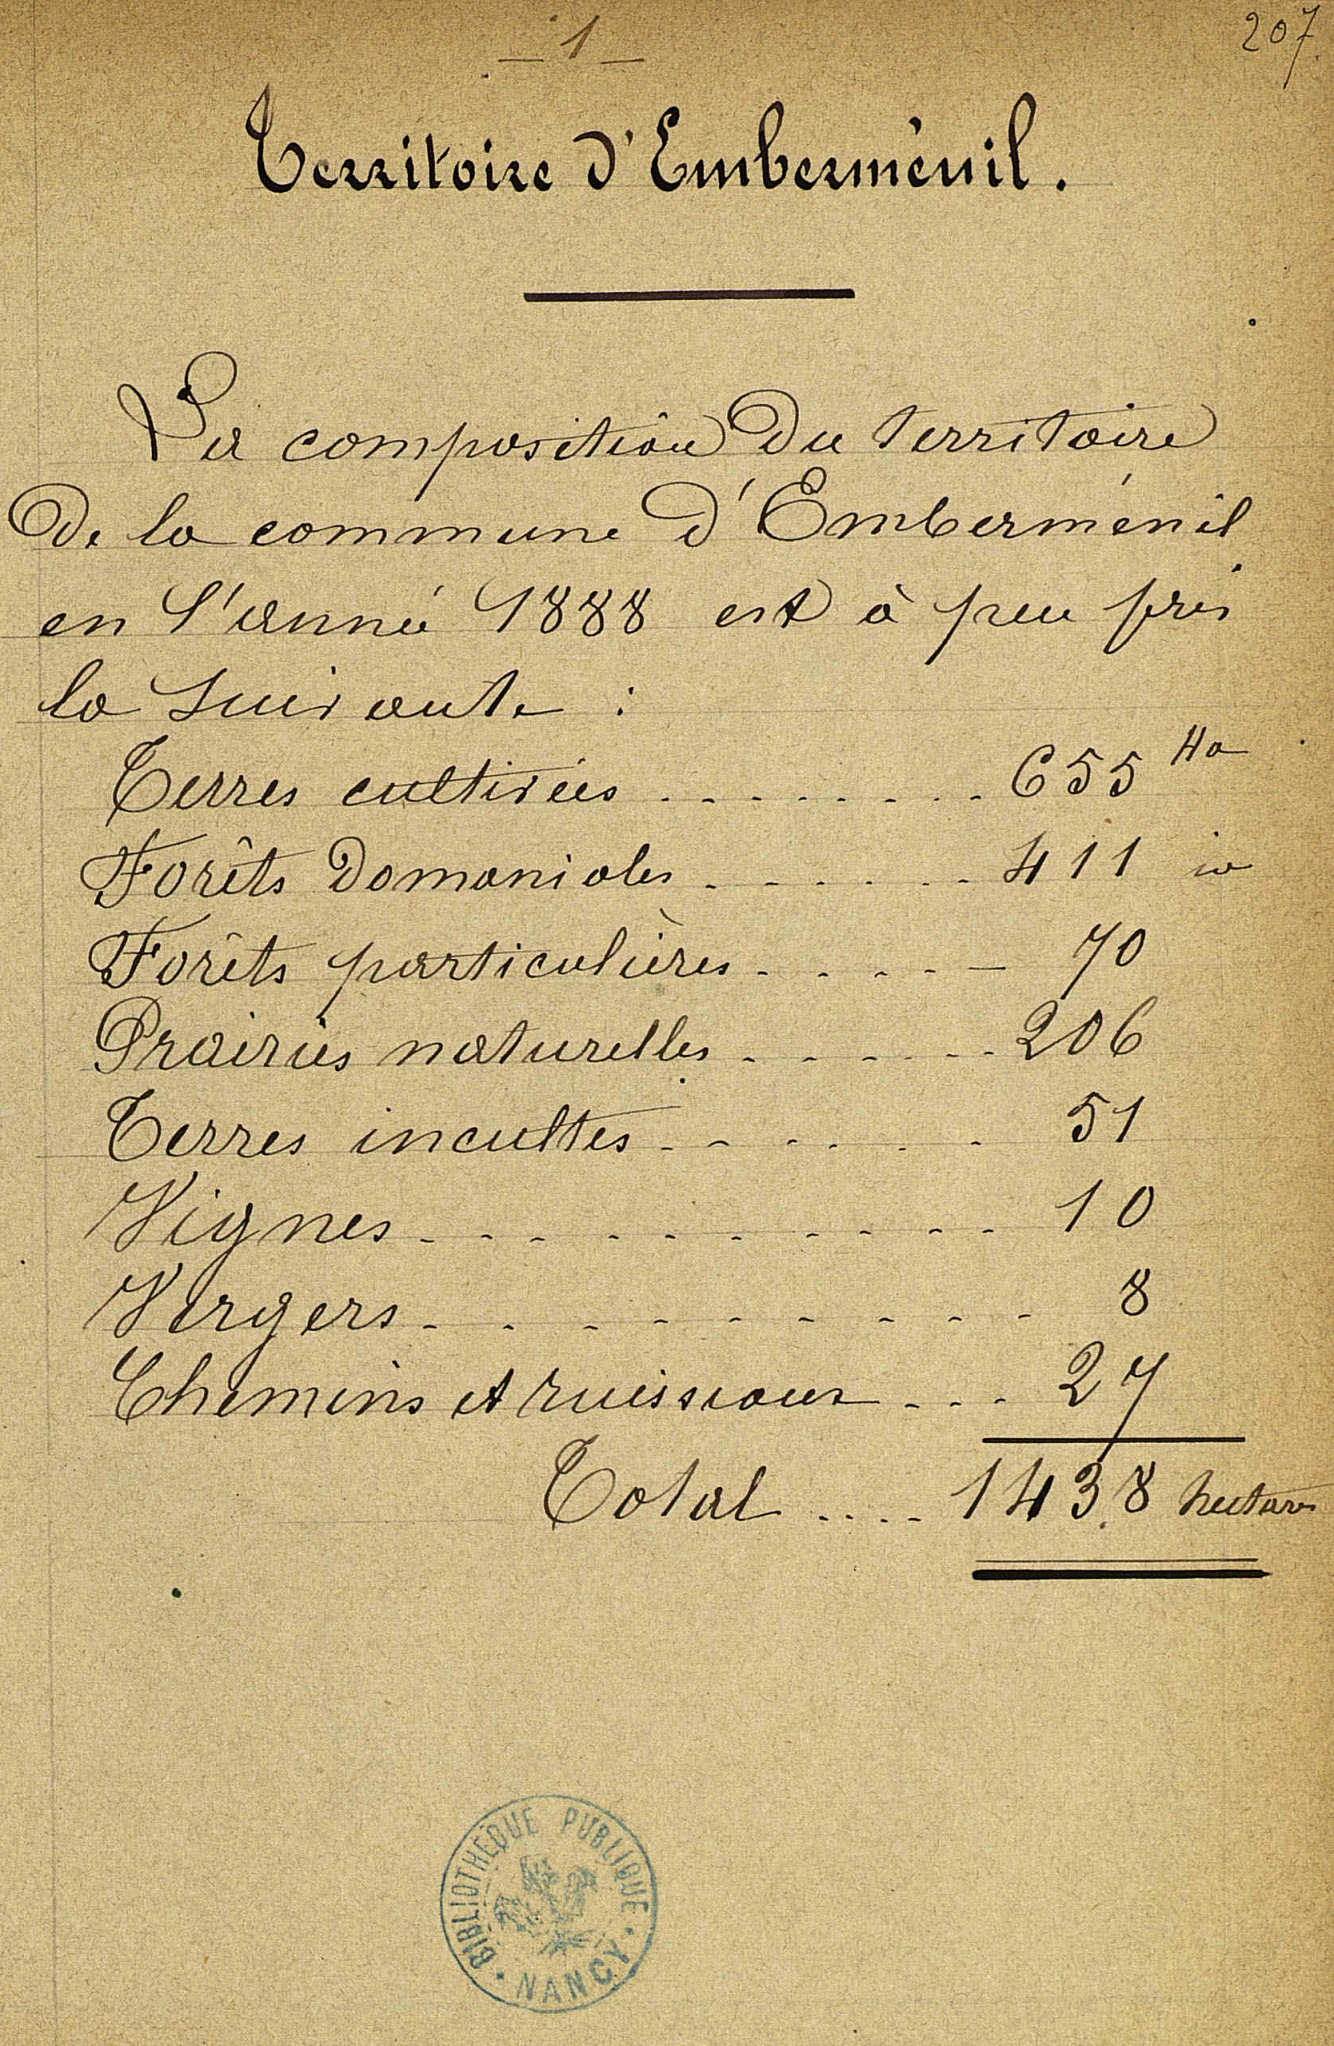 — 1 —
207.
Territoire d'Emberménil.
La composition du territoire
de la commune d'Emberménil
en l'année 1888 est à peu près
la suivante :
Terres cultivées . . . . . . . . . 655 Ha
Forêts Domaniales . . . . . . 411 id
Forêts particulières . . . . . 70
Prairies naturelles . . . . . . 206
Terres incultes . . . . . . 51
Vignes . . . . . . . . . . . 10
Vergers . . . . . . . . . 8
Chemins et ruisseaux . . . 27
Total .... 1438 hectares
BIBLIOTHÈQUE PUBLIQUE
NANCY